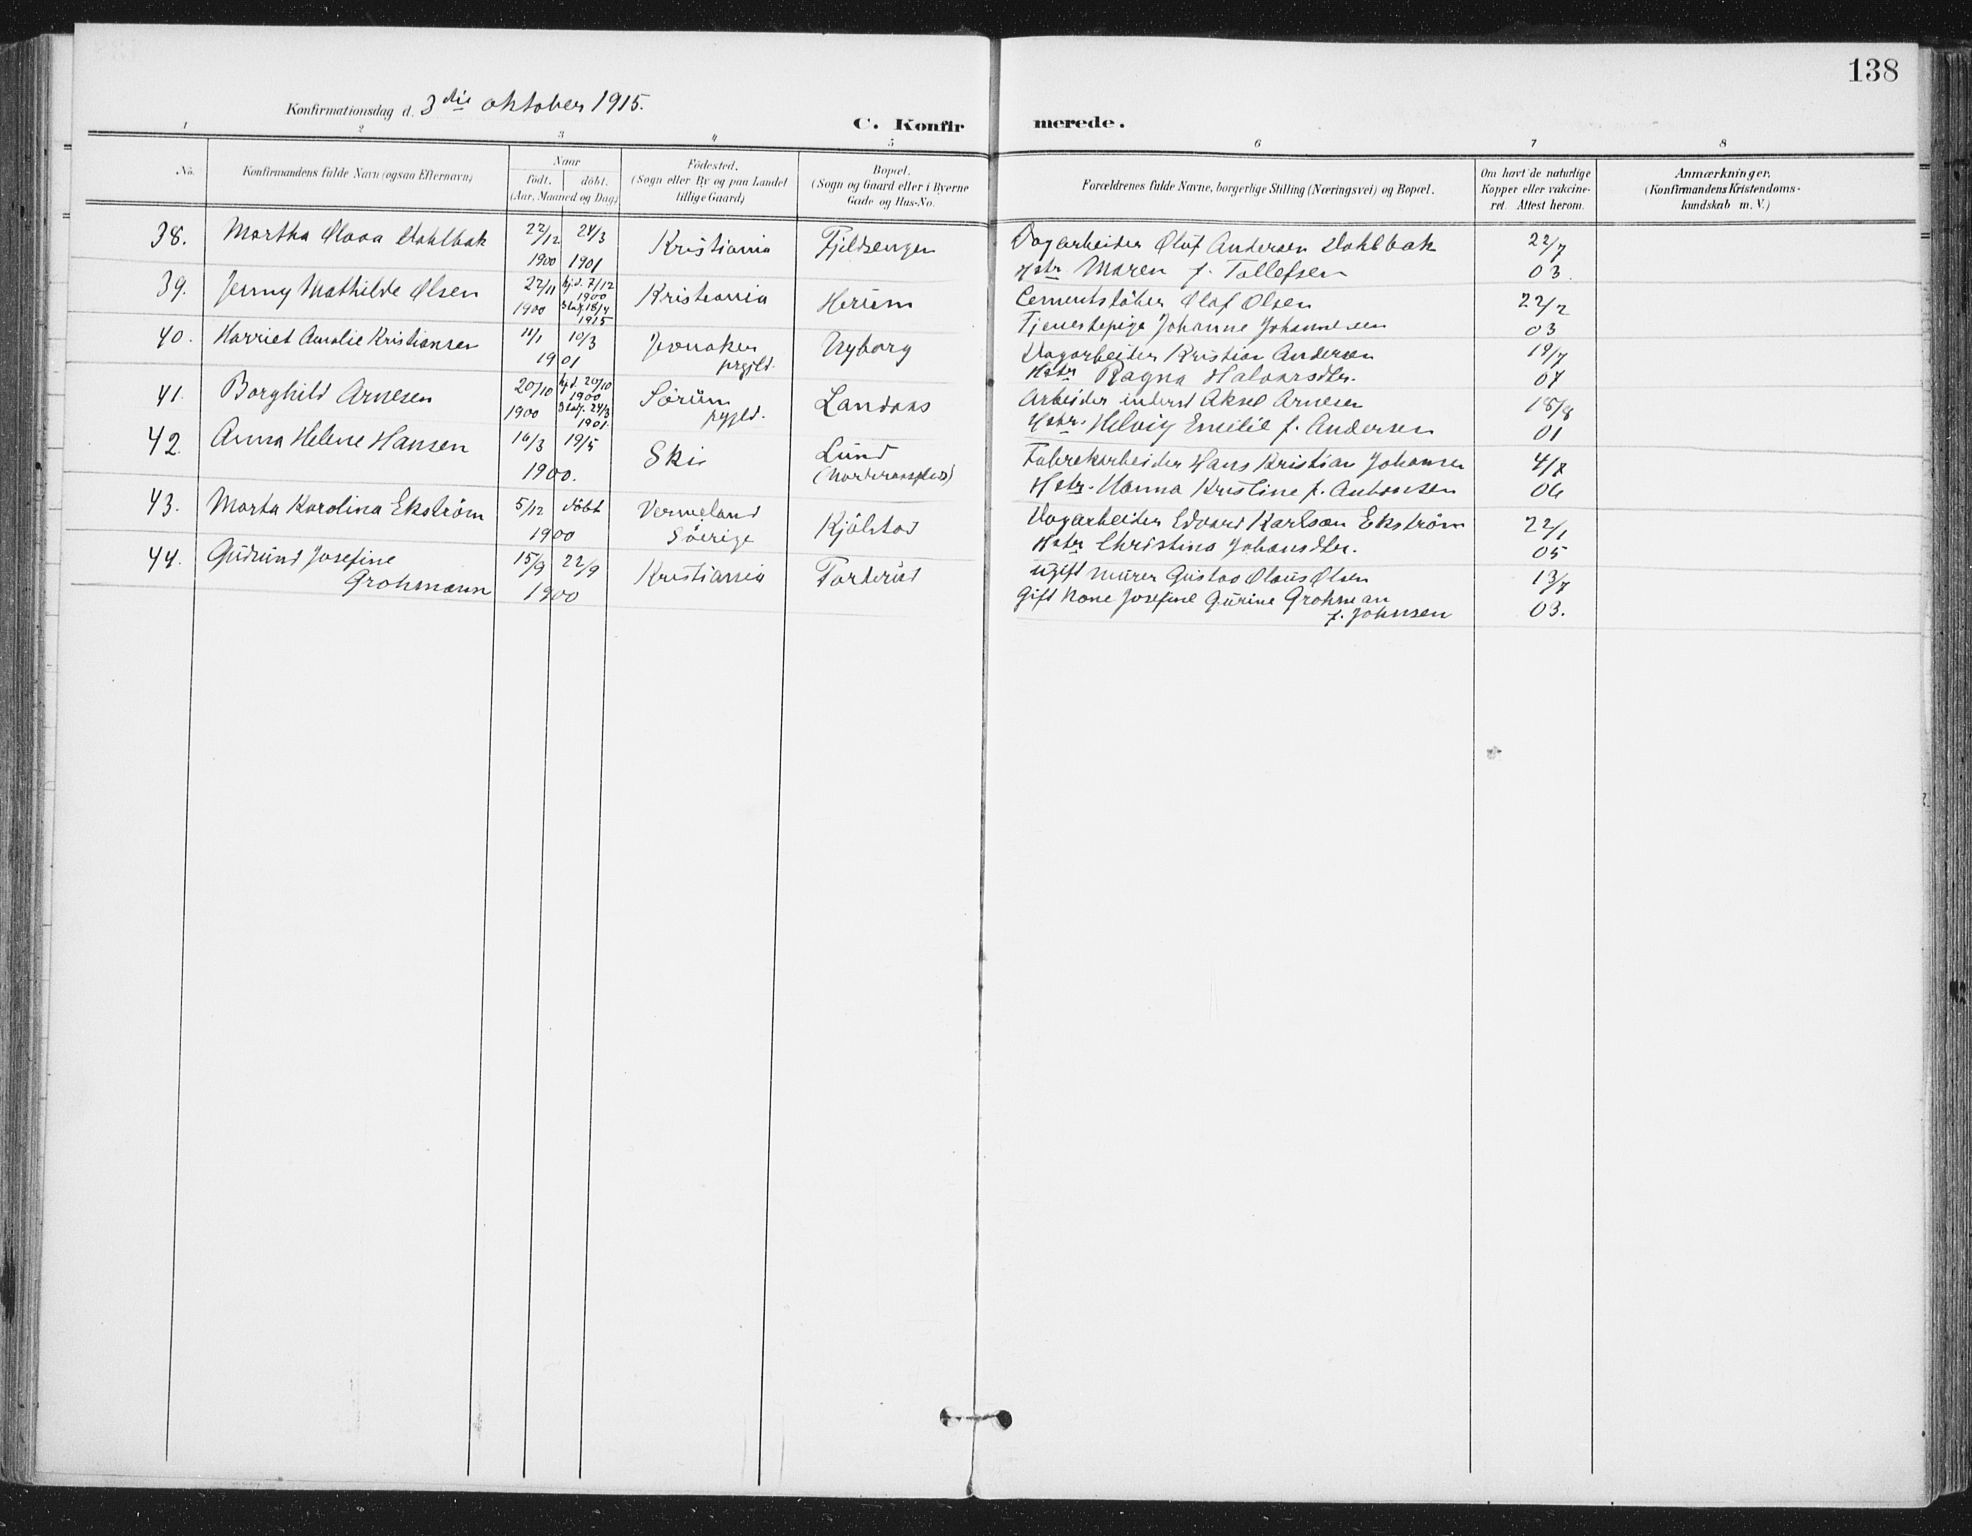 138
Konfirmationsdag d. 3die oktober 1915.
C. Konfirmerede.
1 2 3 4 5 6 7 8
No.
Konfirmandens fulde Navn (ogsaa Efternavn)
Naar
født. døbt.
(Aar, Maaned og Dag)
Fødested.
(Sogn eller By og paa Landet
tillige Gaard)
Bopæl.
(Sogn og Gaard eller i Byerne
Gade og Hus-No.
Forældrenes fulde Navne, borgerlige Stilling (Næringsvei) og Bopæl.
Om havt de naturlige
Kopper eller vakcine-
ret. Attest herom.
Anmærkninger.
(Konfirmandens Kristendoms-
kundskab m. V.)
38. Martha Olava Dahlbak 22/12 24/3 Kristiania Fjeldsenger Dagarbeider Oluf Andersen Dahlbak 22/7
1900 1901 Hstr Maren f. Tollefsen 03
39. Jenny Mathilde Olsen 22/11 hj.d. 7/12 1900 Kristiania Herum Cementstøber Olaf Olsen 22/2
1900 Stadf. 18/4 1915 Tjenestepige Johanne Johannesen 03
40. Harriet Amalie Kristiansen 11/1 10/3 Jevnaker Nyborg Dagarbeider Kristian Andersen 19/7
1901 prgjld. Hstr Ragna Halvarsdtr. 07
41. Borghild Arnesen 20/10 hj.d. 20/10 1900 Sørum Landaas Arbeider inderst Aksel Arnesen 18/8
1900 Stadf. 24/3 1901 pgjld. Hstr. Helvig Emilie f. Andersen 01
42. Anna Helene Hansen 16/3 19/5 Ski Lund Fabrekarbeider Hans Kristian Johansen 4/8
1900. Hstr. Hanna Kristine f. Antonsen 06
43. Marta Karolina Ekstrøm 5/12 døbt Vermeland Kjølstad Dagarbeider Edvard Karlson Ekstrøm 22/1
1900 Sverige Hstr Christina Johansdtr. 05
44. Gudrund Josefine 15/9 22/9 Kristiania Forterud ugift murer Gustav Olaus Olsen 13/7
Grohmann 1900 Gift Kone Josefine Gurine Grohman 03.
f. Johnsen